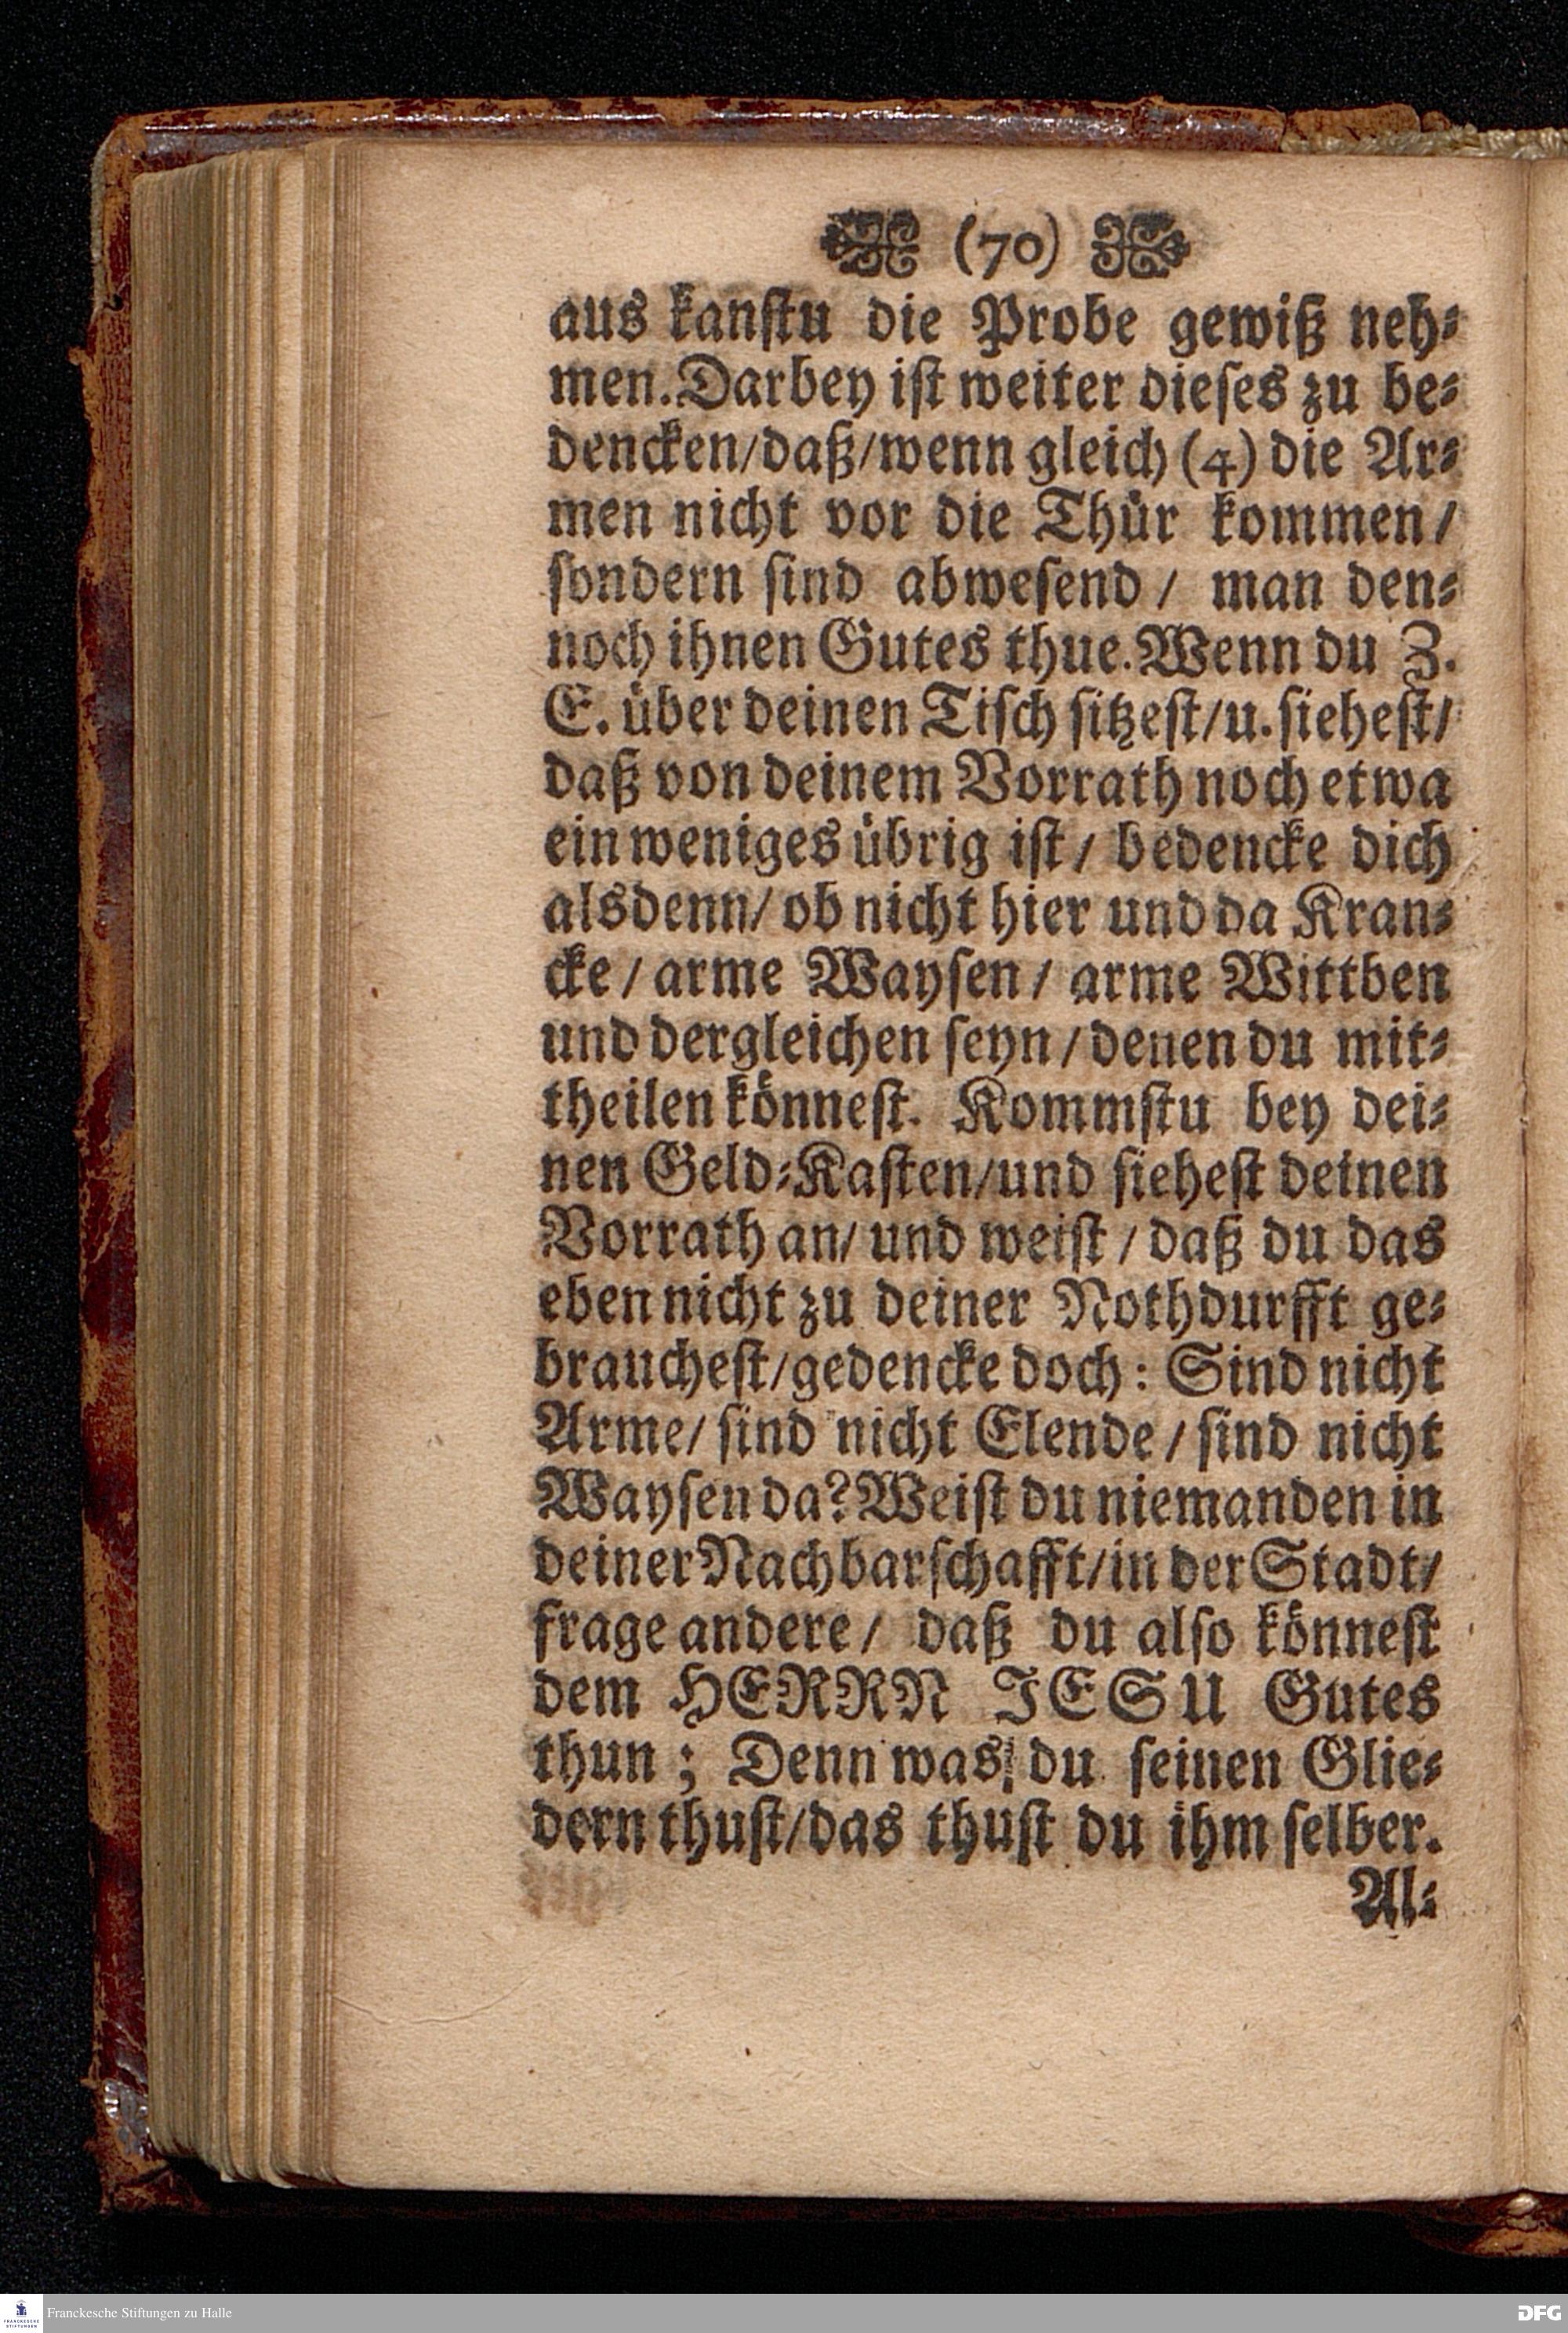 (70)
aus kanstu die Probe gewiß neh⸗
men. Darbey ist weiter dieses zu be⸗
dencken/ daß/ wenn gleich (4) die Ar⸗
men nicht vor die Thür kommen/
sondern sind abwesend/ man den⸗
noch ihnen Gutes thue. Wenn du Z.
E. über deinen Tisch sitzest/ u. siehest/
daß von deinem Vorrath noch etwa
ein weniges übrig ist/ bedencke dich
alsdenn/ ob nicht hier und da Kran⸗
cke/ arme Waysen/ arme Wittben
und dergleichen seyn/ denen du mit⸗
theilen könnest. Kommstu bey dei⸗
nen Geld⸗Kasten/ und siehest deinen
Vorrath an/ und weist/ daß du das
eben nicht zu deiner Nothdurfft ge⸗
brauchest/ gedencke doch: Sind nicht
Arme/ sind nicht Elende/ sind nicht
Waysen da? Weist du niemanden in
deiner Nachbarschafft/ in der Stadt/
frage andere/ daß du also könnest
dem HERRN JESU Gutes
thun; Denn was du seinen Glie⸗
dern thust/ das thust du ihm selber.
Al⸗
Franckesche Stiftungen zu Halle
DFG